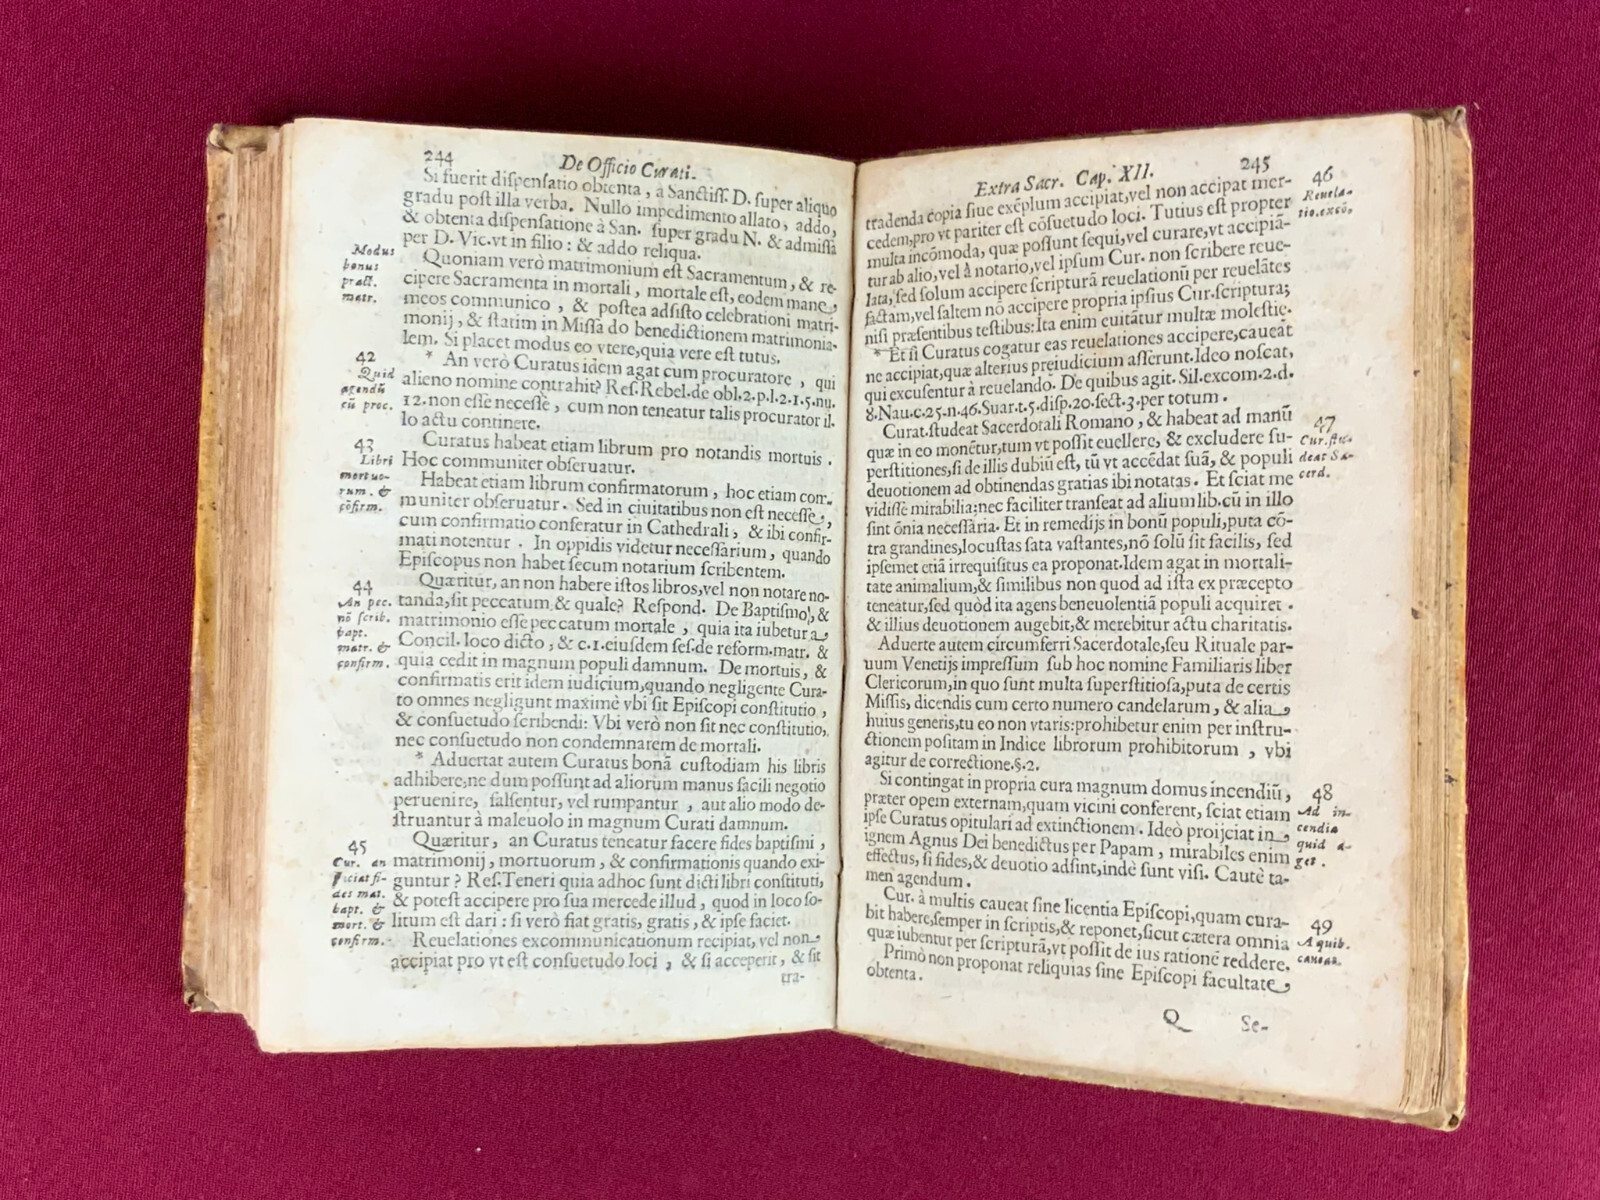 244
De Officio Curati.
Si fuerit dispensatio obtenta, à Sanctiss. D. super aliquo
gradu post illa verba. Nullo impedimento allato, addo,
& obtenta dispensatione à San. super gradu N. & admissa
per D. Vic. vt in filio: & addo reliqua.
Modus
bonus
pract.
matr.
Quoniam verò matrimonium est Sacramentum, & re-
cipere Sacramenta in mortali, mortale est, eodem mane,
meos communico, & postea adsisto celebrationi matri-
monij, & statim in Missa do benedictionem matrimonia-
lem. Si placet modus eo vtere, quia vere est tutus.
42
Quid
agendū
cū proc.
* An verò Curatus idem agat cum procuratore, qui
alieno nomine contrahit? Res. Rebel. de obl. 2. p. l. 2. 1. 5. nu.
12. non esse necesse, cum non teneatur talis procurator il-
lo actu continere.
43
Libri
mortuo-
rum. &
cōfirm.
Curatus habeat etiam librum pro notandis mortuis.
Hoc communiter obseruatur.
Habeat etiam librum confirmatorum, hoc etiam com-
muniter obseruatur. Sed in ciuitatibus non est necesse,
cum confirmatio conferatur in Cathedrali, & ibi confir-
mati notentur. In oppidis videtur necessarium, quando
Episcopus non habet secum notarium scribentem.
44
An pec.
nō scrib.
bapt.
matr. &
confirm.
Quæritur, an non habere istos libros, vel non notare no-
tanda, sit peccatum & quale? Respond. De Baptismo, &
matrimonio esse peccatum mortale, quia ita iubetur a
Concil. loco dicto, & c. 1. eiusdem ses. de reform. matr. &
quia cedit in magnum populi damnum. De mortuis, &
confirmatis erit idem iudicium, quando negligente Cura-
to omnes negligunt maximè vbi sit Episcopi constitutio,
& consuetudo scribendi: Vbi verò non sit nec constitutio,
nec consuetudo non condemnarem de mortali.
* Aduertat autem Curatus bonā custodiam his libris
adhibere, ne dum possunt ad aliorum manus facili negotio
peruenire, falsentur, vel rumpantur, aut alio modo de-
struantur à maleuolo in magnum Curati damnum.
45
Cur. an
faciat fi-
des mat.
bapt. &
mort. &
confirm.
Quæritur, an Curatus teneatur facere fides baptismi,
matrimonij, mortuorum, & confirmationis quando exi-
guntur? Res. Teneri quia adhoc sunt dicti libri constituti,
& potest accipere pro sua mercede illud, quod in loco so-
litum est dari: si verò fiat gratis, gratis, & ipse faciet.
Reuelationes excommunicationum recipiat, vel non
accipiat pro vt est consuetudo loci, & si acceperit, & sit
tra-
Extra Sacr. Cap. XII.
245
tradenda copia siue exēplum accipiat, vel non accipat mer-
cedem, pro vt pariter est cōsuetudo loci. Tutius est propter
multa incōmoda, quæ possunt sequi, vel curare, vt accipiā-
tur ab alio, vel à notario, vel ipsum Cur. non scribere reue-
lata, sed solum accipere scripturā reuelationū per reuelātes
factam, vel saltem nō accipere propria ipsius Cur. scriptura;
nisi præsentibus testibus: Ita enim euitātur multæ molestiæ.
46
Reuela-
tio. excō.
* Et si Curatus cogatur eas reuelationes accipere, caueat
ne accipiat, quæ alterius preiudicium asserunt. Ideo noscat,
qui excusentur à reuelando. De quibus agit. Sil. excom. 2. d.
8. Nau. c. 25. n. 46. Suar. t. 5. disp. 20. sect. 3. per totum.
47
Cur. stu-
deat Sa-
cerd.
Curat. studeat Sacerdotali Romano, & habeat ad manū
quæ in eo monētur, tum vt possit euellere, & excludere su-
perstitiones, si de illis dubiū est, tū vt accēdat suā, & populi
deuotionem ad obtinendas gratias ibi notatas. Et sciat me
vidisse mirabilia; nec faciliter transeat ad alium lib. cū in illo
sint ōnia necessaria. Et in remedijs in bonū populi, puta cō-
tra grandines, locustas sata vastantes, nō solū sit facilis, sed
ipsemet etiā irrequisitus ea proponat. Idem agat in mortali-
tate animalium, & similibus non quod ad ista ex præcepto
teneatur, sed quòd ita agens beneuolentiā populi acquiret.
& illius deuotionem augebit, & merebitur actu charitatis.
Aduerte autem circumferri Sacerdotale, seu Rituale par-
uum Venetijs impressum sub hoc nomine Familiaris liber
Clericorum, in quo sunt multa superstitiosa, puta de certis
Missis, dicendis cum certo numero candelarum, & alia
huius generis, tu eo non vtaris: prohibetur enim per instru-
ctionem positam in Indice librorum prohibitorum, vbi
agitur de correctione. §. 2.
48
Ad in-
cendia
quid a-
get.
Si contingat in propria cura magnum domus incendiū,
præter opem externam, quam vicini conferent, sciat etiam
ipse Curatus opitulari ad extinctionem. Ideò proijciat in
ignem Agnus Dei benedictus per Papam, mirabiles enim
effectus, si fides, & deuotio adsint, indè sunt visi. Cautè ta-
men agendum.
49
A quib.
caueat.
Cur. à multis caueat sine licentia Episcopi, quam cura-
bit habere, semper in scriptis, & reponet, sicut cætera omnia
quæ iubentur per scripturā, vt possit de ius rationē reddere.
Primò non proponat reliquias sine Episcopi facultate
obtenta.
Q
Se-